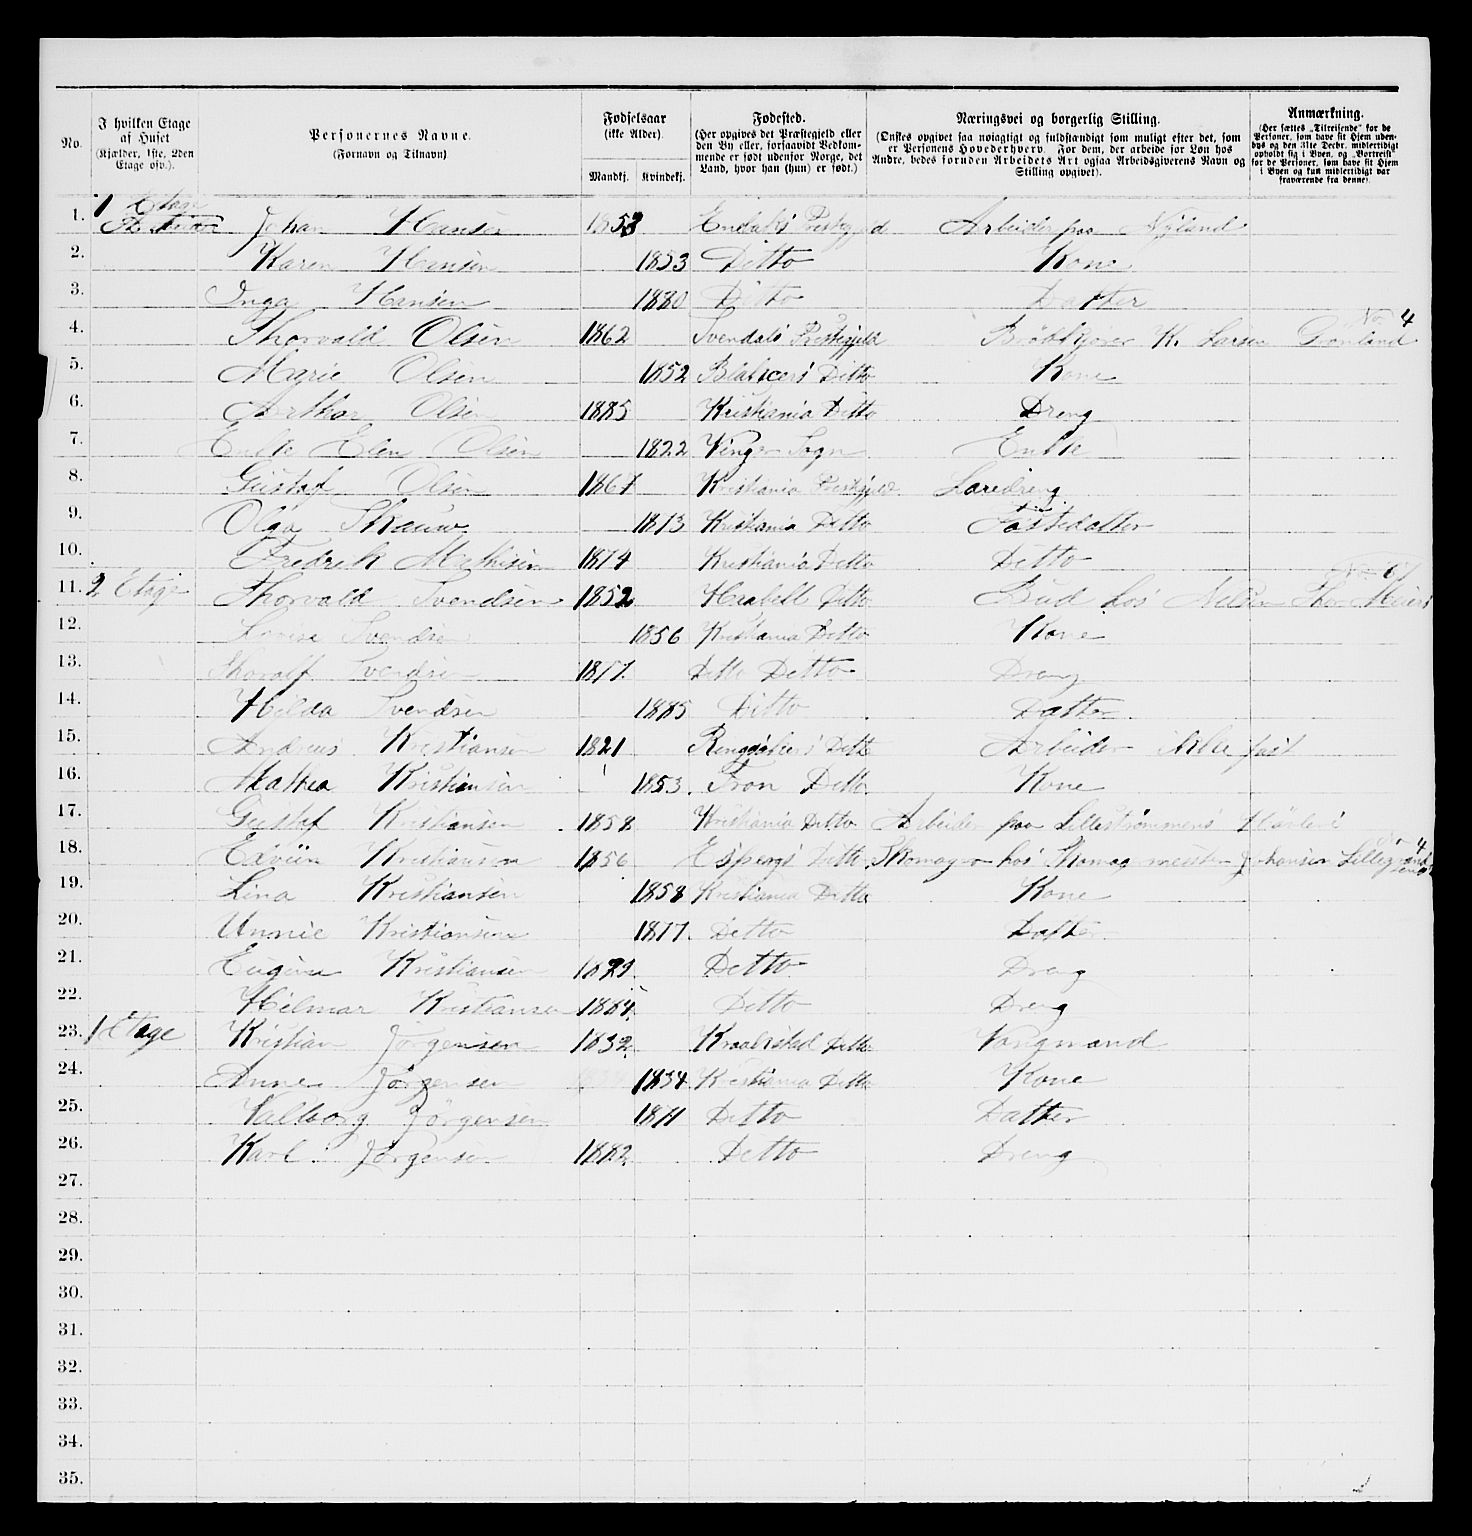 No. | I hvilken Etage af Huset (Kjælder, 1ste, 2den Etage osv.). | Personernes Navne. (Fornavn og Tilnavn) | Fødselsaar (ikke Alder). Mandkj. Kvindekj. | Fødested. (Her opgives det Præstegjeld eller den By eller, forsaavidt Vedkommende er født udenfor Norge, det Land, hvor han (hun) er født.) | Næringsvei og borgerlig Stilling. (Ønskes opgivet saa nøiagtigt og fuldstændigt som muligt efter det, som er Personens Hovederhverv. For dem, der arbeide for Løn hos Andre, bedes foruden Arbeidets Art ogsaa Arbeidsgiverens Navn og Stilling opgivet). | Anmærkning. (Her sættes „Tilreisende“ for de Personer, som have sit Hjem udenbys og den 31te Decbr. midlertidigt opholdt sig i Byen, og „Bortreist“ for de Personer, som have sit Hjem i Byen og kun midlertidigt var fraværende fra denne).
1. 1 Etage Johan Hansen 1853 Arbeider paa Nyland
2. Karen Hansen 1853 Ditto Kone
3. Inga Hansen 1880 Ditto Datter
4. Thorvald Olsen 1862 Svendals Prestigjeld K. Larsen Grønland No 4
5. Marie Olsen 1852 Ditto Kone
6. Arthur Olsen 1885 Kristiania Ditto Dreng
7. Enke Elen Olsen 1822 Vinger Sogn Enke
8. Gustaf Olsen 1867 Kristiania Prestigjeld Laredreng
9. Olga Skauw 1873 Kristiania Ditto Fostedatter
10. Fredrik Mathisen 1874 Kristiania Ditto Ditto
11. 2 Etage Thorvald Svendsen 1852 Ditto Bud hos Thor Meiers
12. Lovise Svendsen 1856 Kristiania Ditto Kone
13. Thoralf Svendsen 1877 Ditto Ditto Dreng
14. Hilda Svendsen 1885 Ditto Datter
15. Andreas Kristiansen 1821 Ringsakers Ditto Arbeider ikke fast
16. Mathea Kristiansen 1853 Tron Ditto Kone
17. Gustaf Kristiansen 1858 Kristiania Ditto Arbeider paa Lillestrømmens Høvleri
18. Edvin Kristiansen 1856 Ditto Skomager hos Skomagmester Johansen No 4
19. Lina Kristiansen 1858 Kristiania Ditto Kone
20. Unnie Kristiansen 1877 Ditto Datter
21. Eugine Kristiansen 1879 Ditto Dreng
22. Hilmar Kristiansen 1884 Ditto Dreng
23. 1 Etage Kristian Jørgensen 1832 Kraakstad Ditto Vongmand
24. Anne Jørgensen 1834 Kristiania Ditto Kone
25. Valborg Jørgensen 1871 Ditto Datter
26. Karl Jørgensen 1882 Ditto Dreng
27.
28.
29.
30.
31.
32.
33.
34.
35.